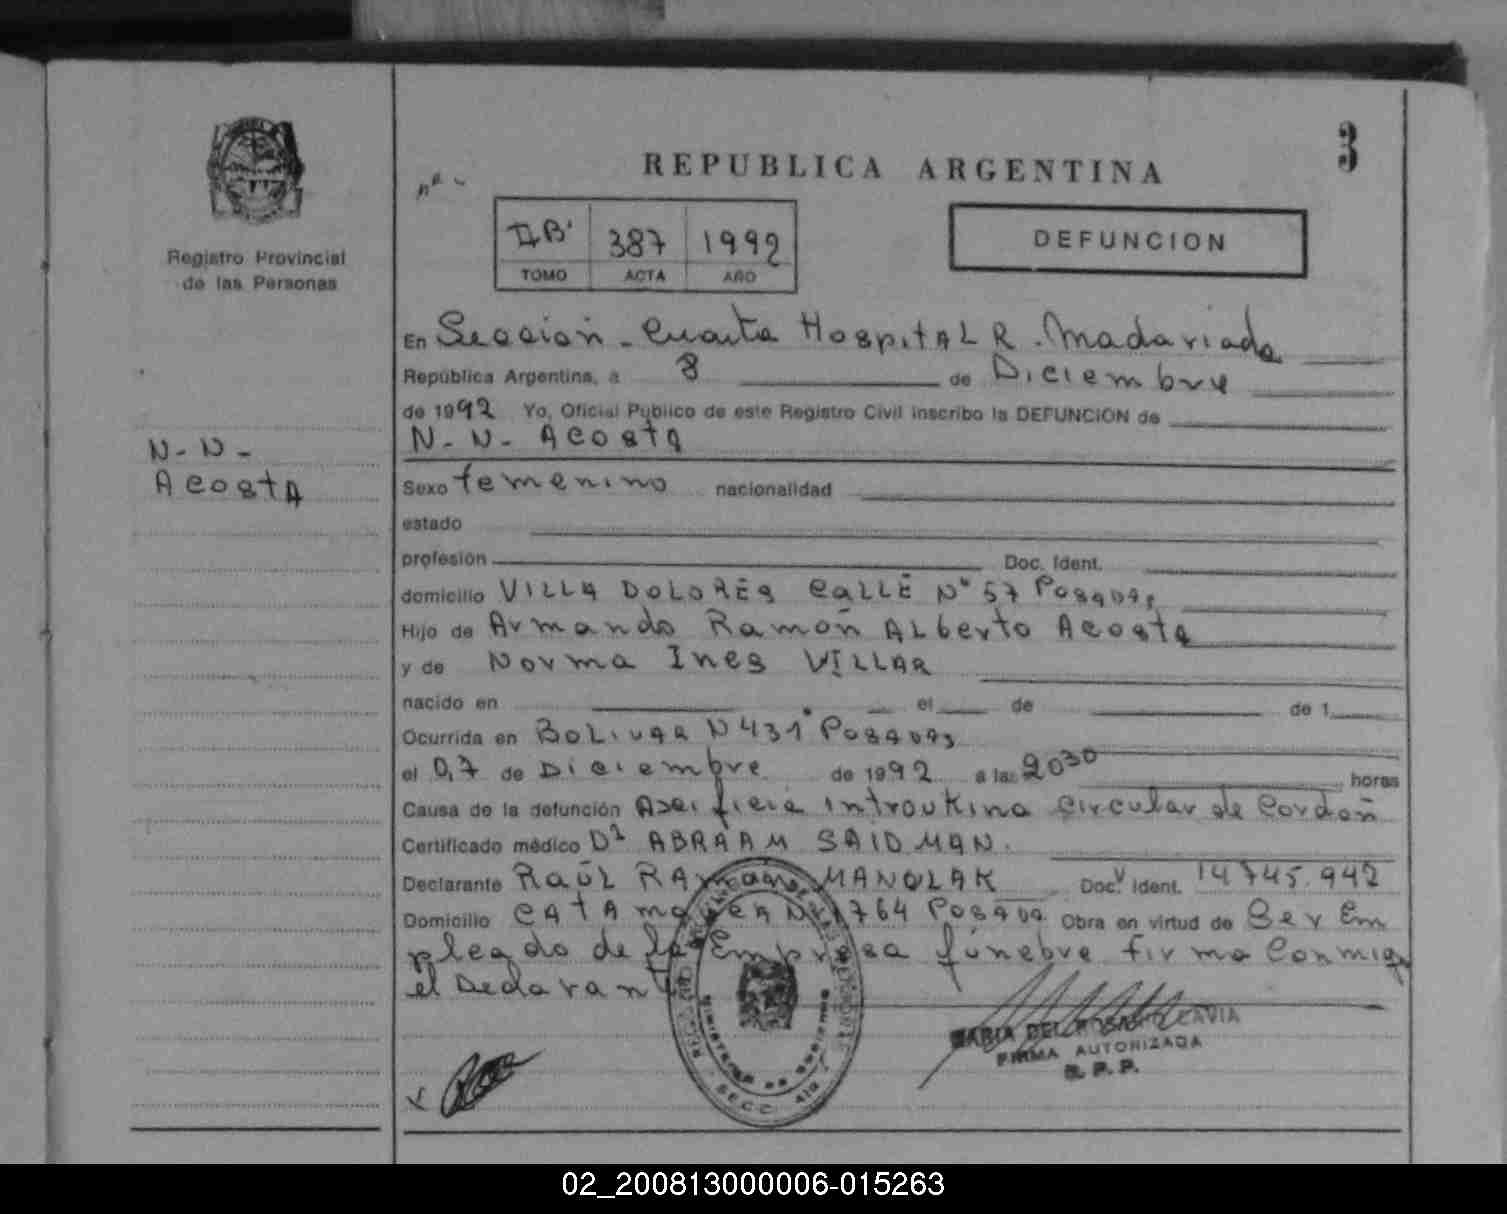 3
REPUBLICA ARGENTINA
Registro Provincial
de las Personas
387 1992
TOMO ACTA AÑO
DEFUNCION
En Sección - Cuarta HospitAL R. Madariada
República Argentina, a 8 de Diciembre
de 1992 Yo, Oficial Público de este Registro Civil inscribo la DEFUNCION de
N-N- AcostA
N-N-
AcostA
Sexo femenino nacionalidad
estado
profesión Doc. Ident.
domicilio VILLA DOLORES CALLE N° 57 Posadas
Hijo de Armando Ramón ALberto Acosta
y de Norma Ines VILLAR
nacido en el de de 1
Ocurrida en BOLIVAR N 431° Posadas
el 07 de Diciembre de 1992 a las 2030 horas
Causa de la defunción circular de Cordon
Certificado médico ABRAAM SAIDMAN.
Declarante RAÚL RAmón MANULAK Doc. Ident. 14745.942
Domicilio CAtAmarcA N 1764 Posadas Obra en virtud de Ser Em
pleado de la Empresa fúnebre firma Conmigo
el Declarante
MARIA DEL ROSARIO LAVIA
FIRMA AUTORIZADA
R. P. P.
MINISTERIO DE GOBIERNO
SECC. 4ta
02_200813000006-015263